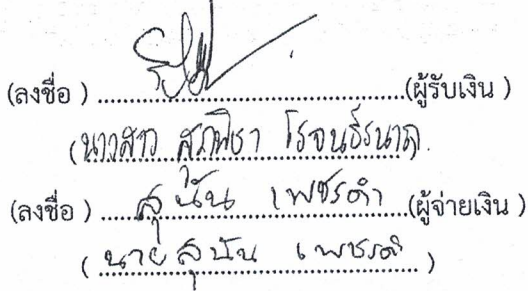 (ลงชื่อ ) ............(ผู้รับเงิน )
(นางสาว สุภพิชา โรจนธีรนาถ.
(ลงชื่อ ) สุนัน เพชรดำ (ผู้จ่ายเงิน )
( นายสุนัน เพชรดำ )